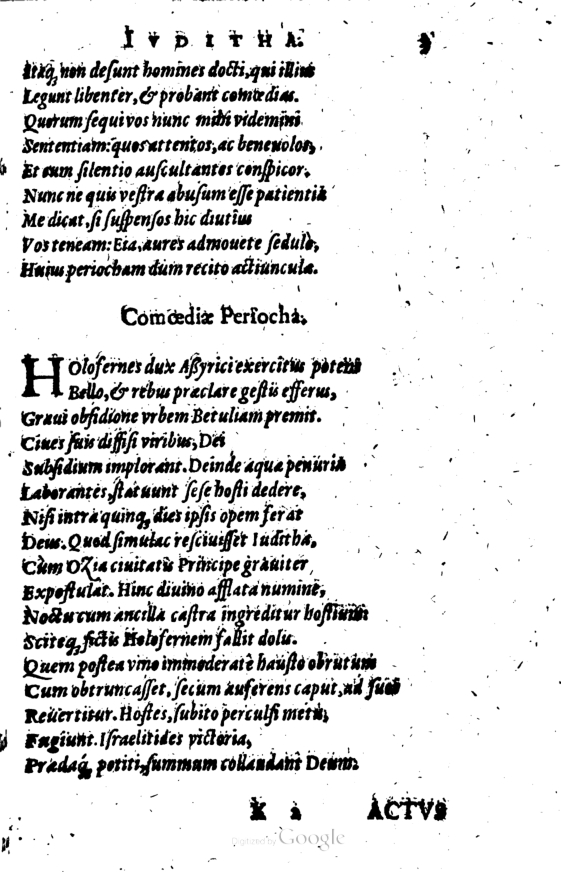 IVDITHA. 9
Itaq; non desunt homines docti, qui illius
Legunt libenter, & probant comœdias.
Quorum sequi vos nunc mihi videmini
Sententiam: quos attentos, ac beneuolos,
Et cum silentio auscultantes conspicor,
Nunc ne quis vestra abusum esse patientia
Me dicat, si suspensos hic diutius
Vos teneam: Eia, aures admouete sedulò,
Huius periocham dum recito actiuncula.
Comœdiæ Periocha.
HOlofernes dux Aßyrici exercitus potens
Bello, & rebus præclare gestis efferus,
Graui obsidione vrbem Betuliam premit.
Ciues suis diffisi viribus, Dei
Subsidium implorant. Deinde aqua penuria
Laborantes, statuunt sese hosti dedere,
Nisi intra quinq; dies ipsis opem ferat
Deus. Quod simulac resciuisset Iuditha,
Cùm OZia ciuitatis Principe grauiter
Expostulat. Hinc diuino afflata numine,
Noctu cum ancilla castra ingreditur hostium
Sciteq; fictis Holofernem fallit dolis.
Quem postea vino immoderatè hausto obrutum
Cum obtruncasset, secum auferens caput, ad suos
Reuertitur. Hostes, subito perculsi metu,
Fugiunt. Israelitides victoria,
Prædaq; potiti, summum collaudant Deum.
K 2 ACTVS
Digitized by Google